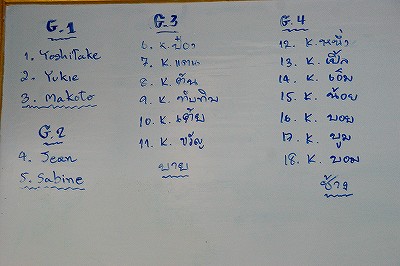 G.1
1. YoshiTake
2. Yukie
3. Makoto
G.2
4. Jean
5. Sabine
G.3
6. K. ป๋อง
7. K. แดน
8. K. ต้น
9. K. ทับทิม
10. K. เตี้ย
11. K. ขวัญ
บาย
G.4
12. K. หน่ำ
13. K. เปิ้ล
14. K. เอ็ม
15. K. น้อย
16. K. บอย
17. K. บูม
18. K. บอม
ช้าง